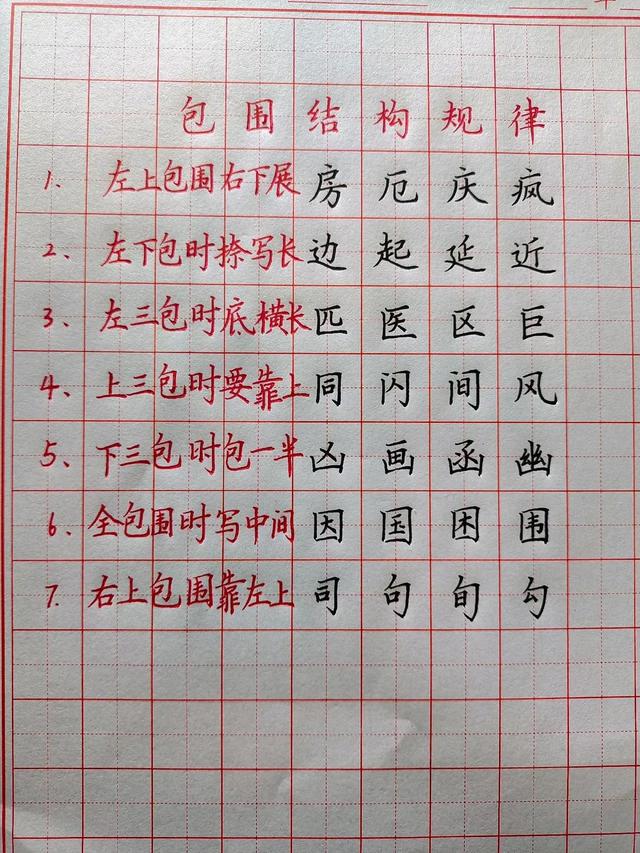 包围结构规律
1. 左上包围右下展 房 厄 庆 疯
2、左下包时捺写长 边 起 延 近
3、左三包时底横长 匹 医 区 巨
4、上三包时要靠上 同 闪 间 风
5、下三包时包一半 凶 画 函 幽
6、全包围时写中间 因 国 困 围
7. 右上包围靠左上 司 句 旬 勾